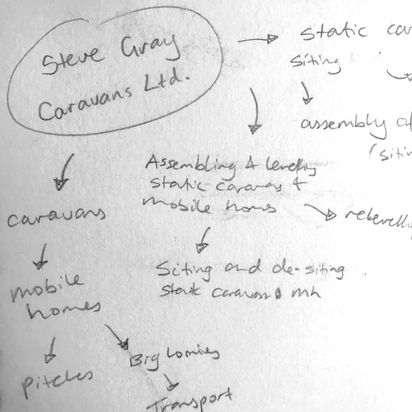 Steve Gray
Caravans Ltd.
Static car
Siting
assembly of
(sitin
Assembling & levelling
static caravans &
mobile homs
relevelling
caravans
Siting and de-siting
static caravan & mh
mobile
homes
Big lorries
pitches
Transport